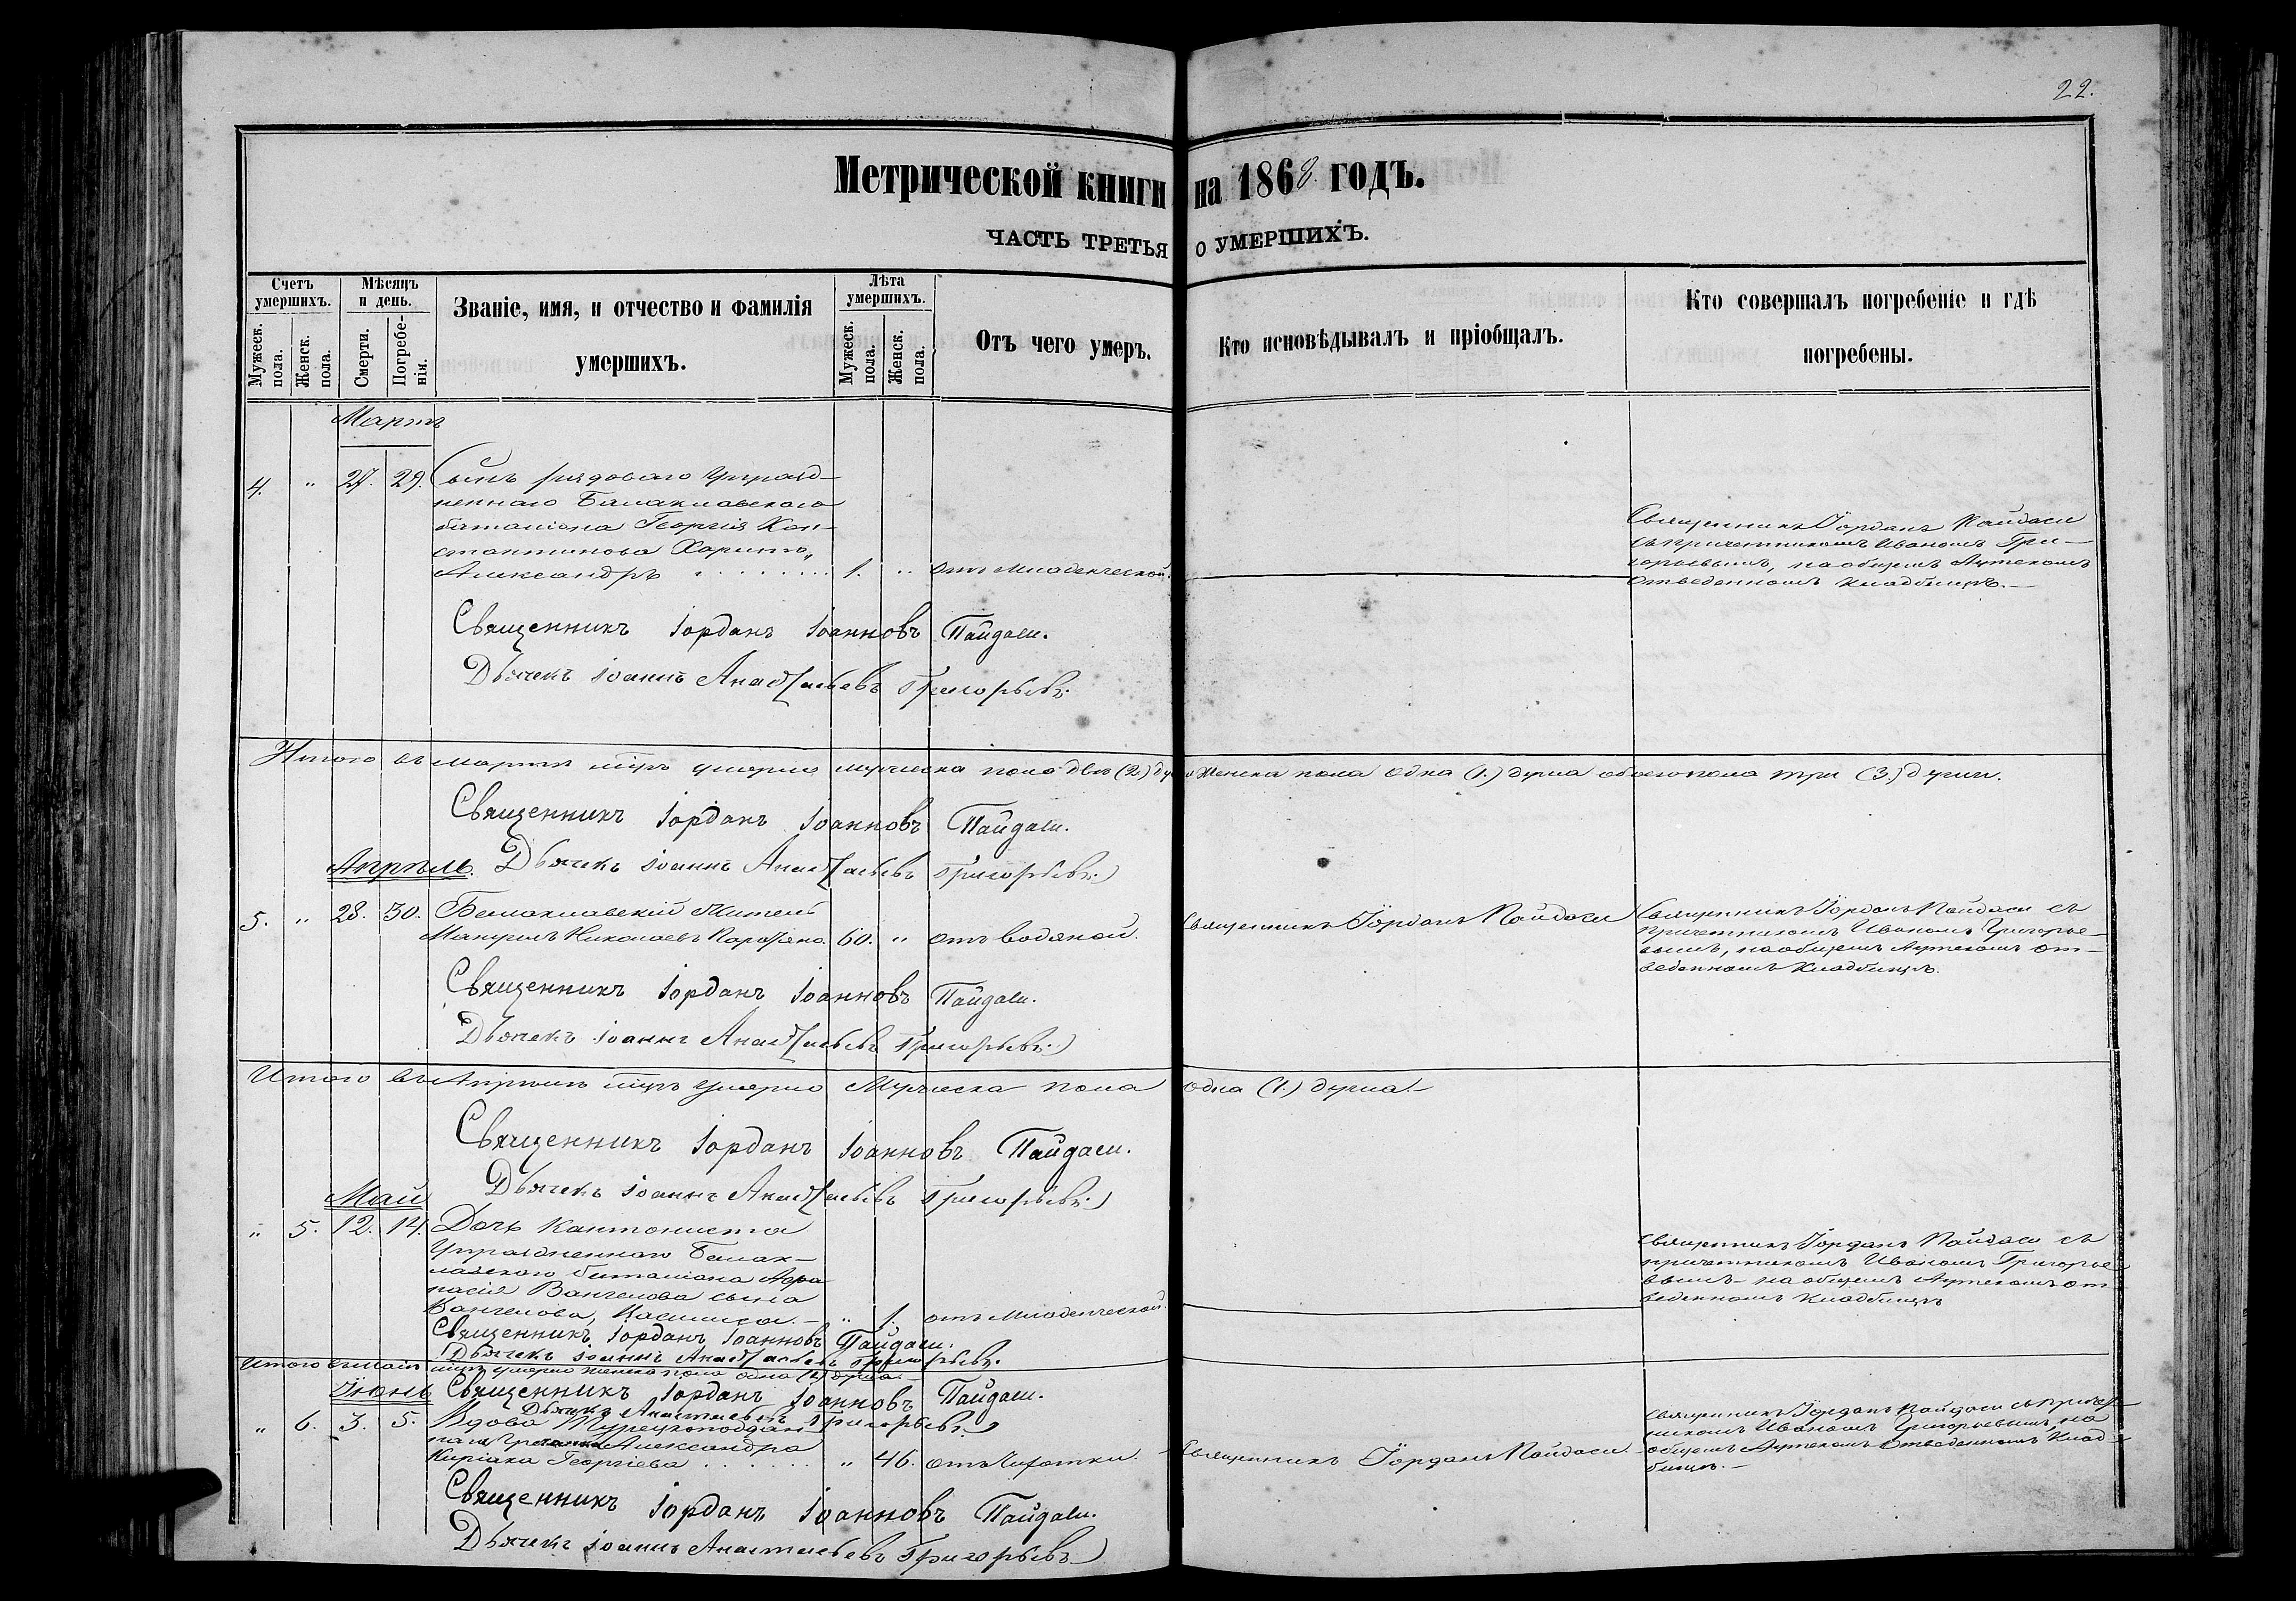 22.
Метрической книги на 1868. годъ.
ЧАСТЬ ТРЕТЬЯ О УМЕРШИХЪ.
Счетъ умершихъ.
Мужеск. пола.
Женск. пола.
Мѣсяцъ и день.
Смерти.
Погребенія.
Званіе, имя, и отчество и фамилія
умершихъ.
Лѣта умершихъ.
Мужеск. пола.
Женск. пола.
Отъ чего умеръ.
Кто исповѣдывалъ и пріобщалъ.
Кто совершалъ погребеніе и гдѣ
погребены.
Мартъ
4. " 27. 29. Сынъ рядоваго Упразд-
неннаго Балаклавскаго
баталіона Георгія Кон-
стантинова Харито,,
Александръ 1. " отъ младенческой.
Священникъ Іорданъ Пайдаси
съ причетникомъ Иваномъ Гри-
горьевымъ, на общемъ Аутскомъ
отведенномъ кладбищѣ.—
Священникъ Іорданъ Іоанновъ Пайдаси.
Дьячекъ Іоаннъ Анастасьевъ Григорьевъ.
Итого въ мартѣ мцѣ умерло мужеска пола двѣ (2.) и женска пола одна (1.) душа обоего пола три (3.) души.
Священникъ Іорданъ Іоанновъ Пайдаси.
Дьячекъ Іоаннъ Анастасьевъ Григорьевъ.
Апрѣль.
5. " 28. 30. Балаклавскій житель
Николаевъ 60. " отъ водяной. Священникъ Іорданъ Пайдаси
Священникъ Іорданъ Пайдаси съ
причетникомъ Иваномъ Григорье-
вымъ, на общемъ Аутскомъ от-
веденномъ кладбищѣ.
Священникъ Іорданъ Іоанновъ Пайдаси.
Дьячекъ Іоаннъ Анастасьевъ Григорьевъ.
Итого въ Апрѣлѣ мцѣ умерло Мужеска пола одна (1.) душа.—
Священникъ Іорданъ Іоанновъ Пайдаси.
Дьячекъ Іоаннъ Анастасьевъ Григорьевъ.
Май
" 5. 12. 14. Дочь кантониста
Упраздненнаго Балак-
лавскаго баталіона Афа-
насія Вангелова сына
Вангелова, " 1. отъ младенческой.
Священникъ Іорданъ Пайдаси съ
причетникомъ Иваномъ Григорье-
вымъ на общемъ Аутскомъ от-
веденномъ кладбищѣ
Священникъ Іорданъ Іоанновъ Пайдаси.
Дьячекъ Іоаннъ Анастасьевъ Григорьевъ.
Итого въ маѣ мцѣ умерло женска пола одна (1.) душа.—
Священникъ Іорданъ Іоанновъ Пайдаси.
Дьячекъ Анастасьевъ Григорьевъ.
Іюнь
" 6. 3. 5. Вдова Турецкоподдан-
Александра
Киріака Георгіева " 46. отъ чахотки. Священникъ Іорданъ Пайдаси
Священникъ Іорданъ Пайдаси съ причет-
никомъ Иваномъ Григорьевымъ, на
общемъ Аутскомъ отведенномъ клад-
бищѣ.—
Священникъ Іорданъ Іоанновъ Пайдаси.
Дьячекъ Іоаннъ Анастасьевъ Григорьевъ